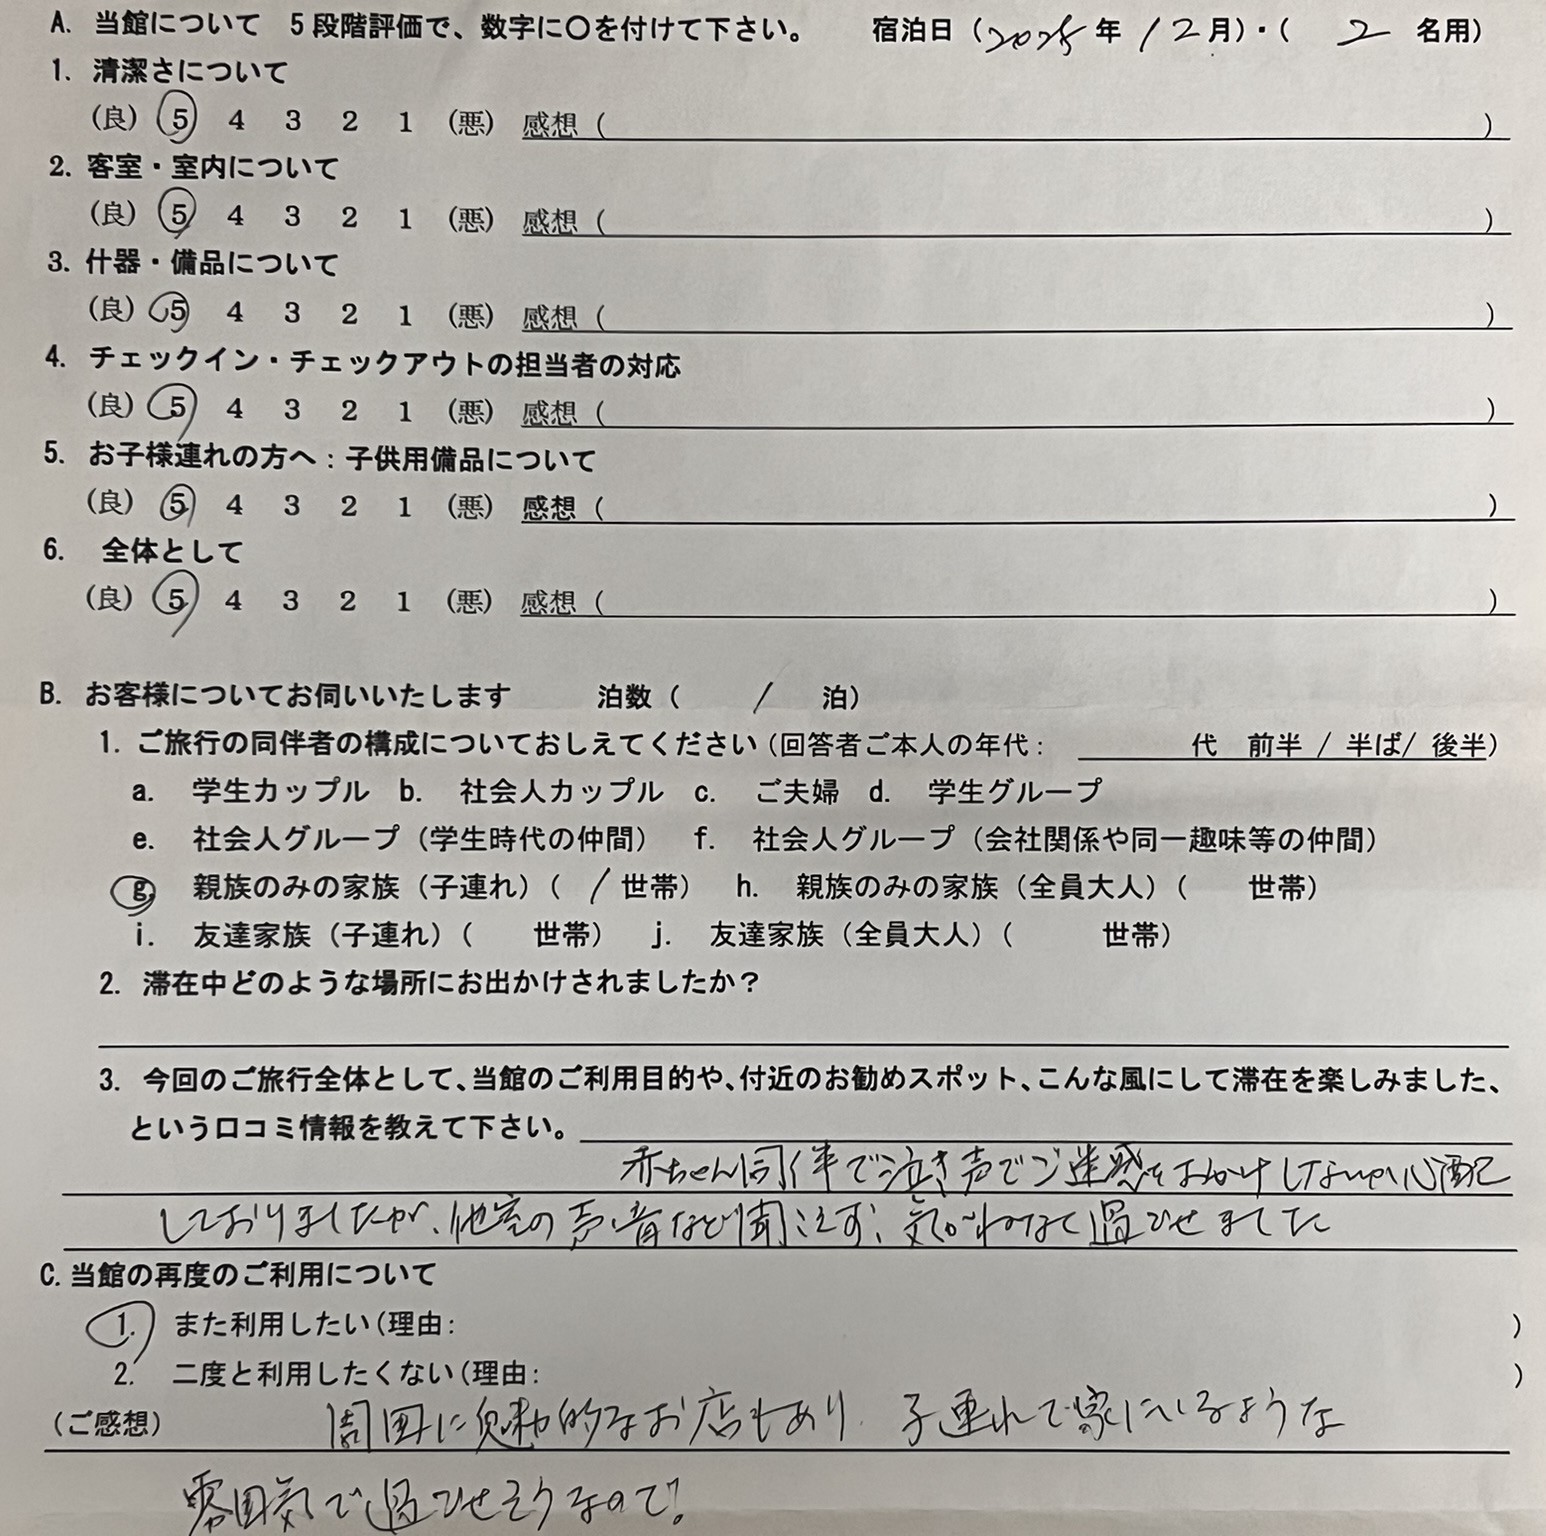 A. 当館について 5段階評価で、数字に〇を付けて下さい。 宿泊日（2025年12月）・（ 2 名用）
1. 清潔さについて
（良） 5 4 3 2 1 （悪） 感想（ ）
2. 客室・室内について
（良） 5 4 3 2 1 （悪） 感想（ ）
3. 什器・備品について
（良） 5 4 3 2 1 （悪） 感想（ ）
4. チェックイン・チェックアウトの担当者の対応
（良） 5 4 3 2 1 （悪） 感想（ ）
5. お子様連れの方へ：子供用備品について
（良） 5 4 3 2 1 （悪） 感想（ ）
6. 全体として
（良） 5 4 3 2 1 （悪） 感想（ ）
B. お客様についてお伺いいたします 泊数（ 1 泊）
1. ご旅行の同伴者の構成についておしえてください（回答者ご本人の年代： 代 前半 / 半ば/ 後半）
a. 学生カップル b. 社会人カップル c. ご夫婦 d. 学生グループ
e. 社会人グループ（学生時代の仲間） f. 社会人グループ（会社関係や同一趣味等の仲間）
g. 親族のみの家族（子連れ）（ 1 世帯） h. 親族のみの家族（全員大人）（ 世帯）
i. 友達家族（子連れ）（ 世帯） j. 友達家族（全員大人）（ 世帯）
2. 滞在中どのような場所にお出かけされましたか？
3. 今回のご旅行全体として、当館のご利用目的や、付近のお勧めスポット、こんな風にして滞在を楽しみました、
という口コミ情報を教えて下さい。
赤ちゃん同伴で泣き声でご迷惑をおかけしないか心配
しておりましたが、他室の声・音など聞こえず、気がねなく過ごせました
C. 当館の再度のご利用について
1. また利用したい（理由： ）
2. 二度と利用したくない（理由： ）
（ご感想） 周囲に魅力的なお店もあり、子連れで家にいるような
雰囲気で過ごせそうなので！